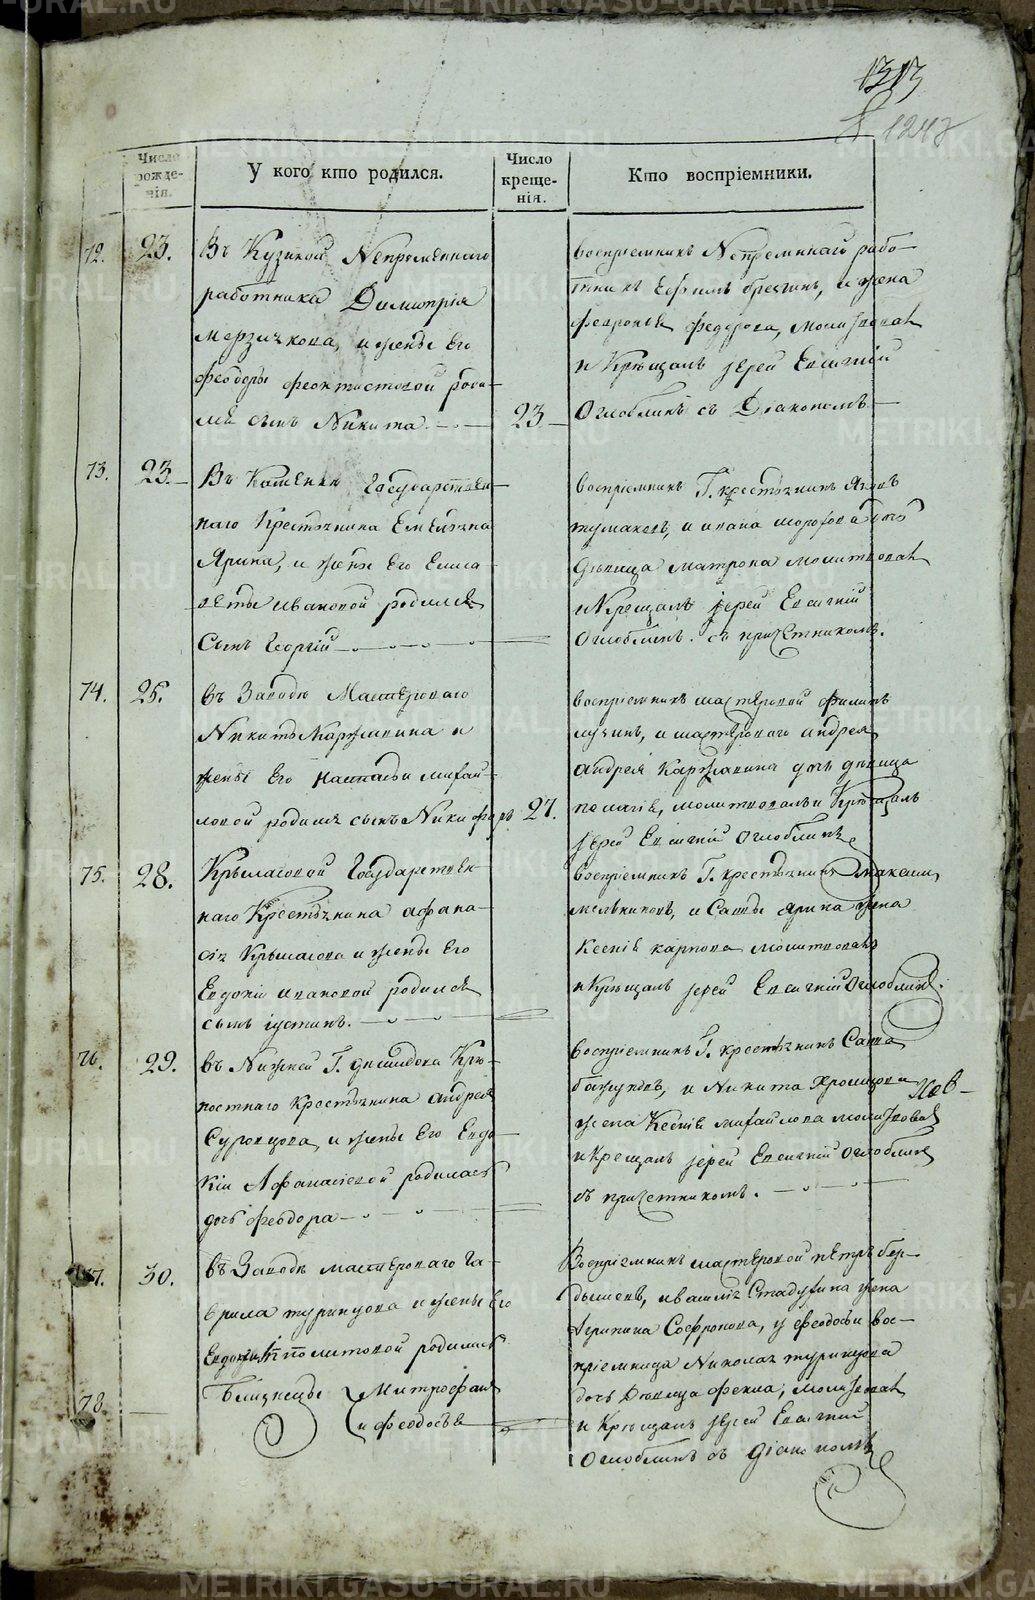 1313
1248
Число рожде-нія.
У кого кто родился.
Число креще-нія.
Кто воспріемники.
72.
23.
Въ Кузиной Непременнаго
работника Димитрія
Мерзлякова, и жены Его
Феодоры Феоктистовой роди-
лся сынъ Никита.
23
воспріемникъ Непременнаго рабо-
тника Ефимъ, и жена
Феодорова, молитвовал
и Крещалъ Іерей Евсигній
Оглоблинъ съ Діакономъ
73.
23.
Въ Государствен-
наго Крестьянина Емельяна
Ярина, и жены Его Елиса-
веты Ивановой родился
Сынъ Георгій
воспріемникъ Г. крестьянинъ Яковъ
и Ивана Морозова дочь
девица Матрона молитвовал
и Крещалъ Іерей Евсигній
Оглоблинъ. съ причетникомъ.
74.
25.
въ Заводе Мастероваго
Никиты Каржавина и
жены Его Настасьи Михай-
ловой родился сынъ Никифоръ
27.
воспріемникъ мастеровой Филипъ
и мастероваго Андрея
Андрея Каржавина дочь девица
Пелагія, молитвовалъ и Крещалъ
Іерей Евсигній Оглоблинъ
75.
28.
Крыласовой Государствен-
наго Крестьянина Афана-
сія Крыласова и жены Его
Евдокіи Ивановой родился
сынъ Іустинъ.
воспріемникъ Г. крестьянинъ Максимъ
Мельниковъ, и Савы Ярина жена
Ксенія Карпова молитвовалъ
и Крещалъ Іерей Евсигній Оглоблинъ.
76.
29.
въ Нижней Г. Демидова Кре-
постнаго Крестьянина Андрея
Суровцова, и жены Его Евдо-
кіи Афанасіевой родилась
дочь Феодора
воспріемникъ Г. крестьянинъ Сава
и Никита
жена Ксенія Михайлова молитвовал
и Крещалъ Іерей Евсигній Оглоблинъ
съ причетникомъ.
77.
30.
въ Заводе мастероваго Га-
врила Туринцова и жены Его
Евдокіи Ипполитовой родились
78.
Близнецы Митрофанъ
и Феодосья
Воспріемникъ мастеровой Петръ Бер-
дышевъ, Стадухина жена
Агрипина Софронова, у Феодосьи вос-
пріемница Николая Туринцова
дочь Девица Фекла; молитвовал
и Крещалъ Іерей Евсигній
Оглоблинъ съ Діакономъ
METRIKI.GASO-URAL.RU